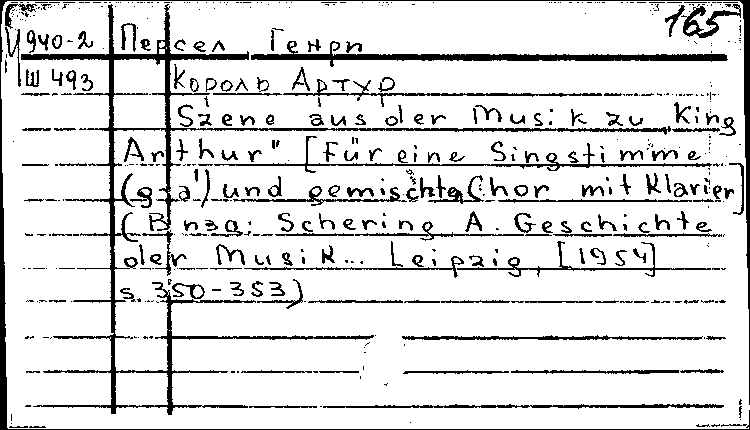 165
М 940-2 Персел, Генри
Ш 493 Король Артур
Szene aus der Musik zu „King
Arthur" [Für eine Singstimme
(g-a') und gemischten Chor mit Klavier]
(В изд: Schering A. Geschichte
der Musik... Leipzig, [1954]
s. 350-353)